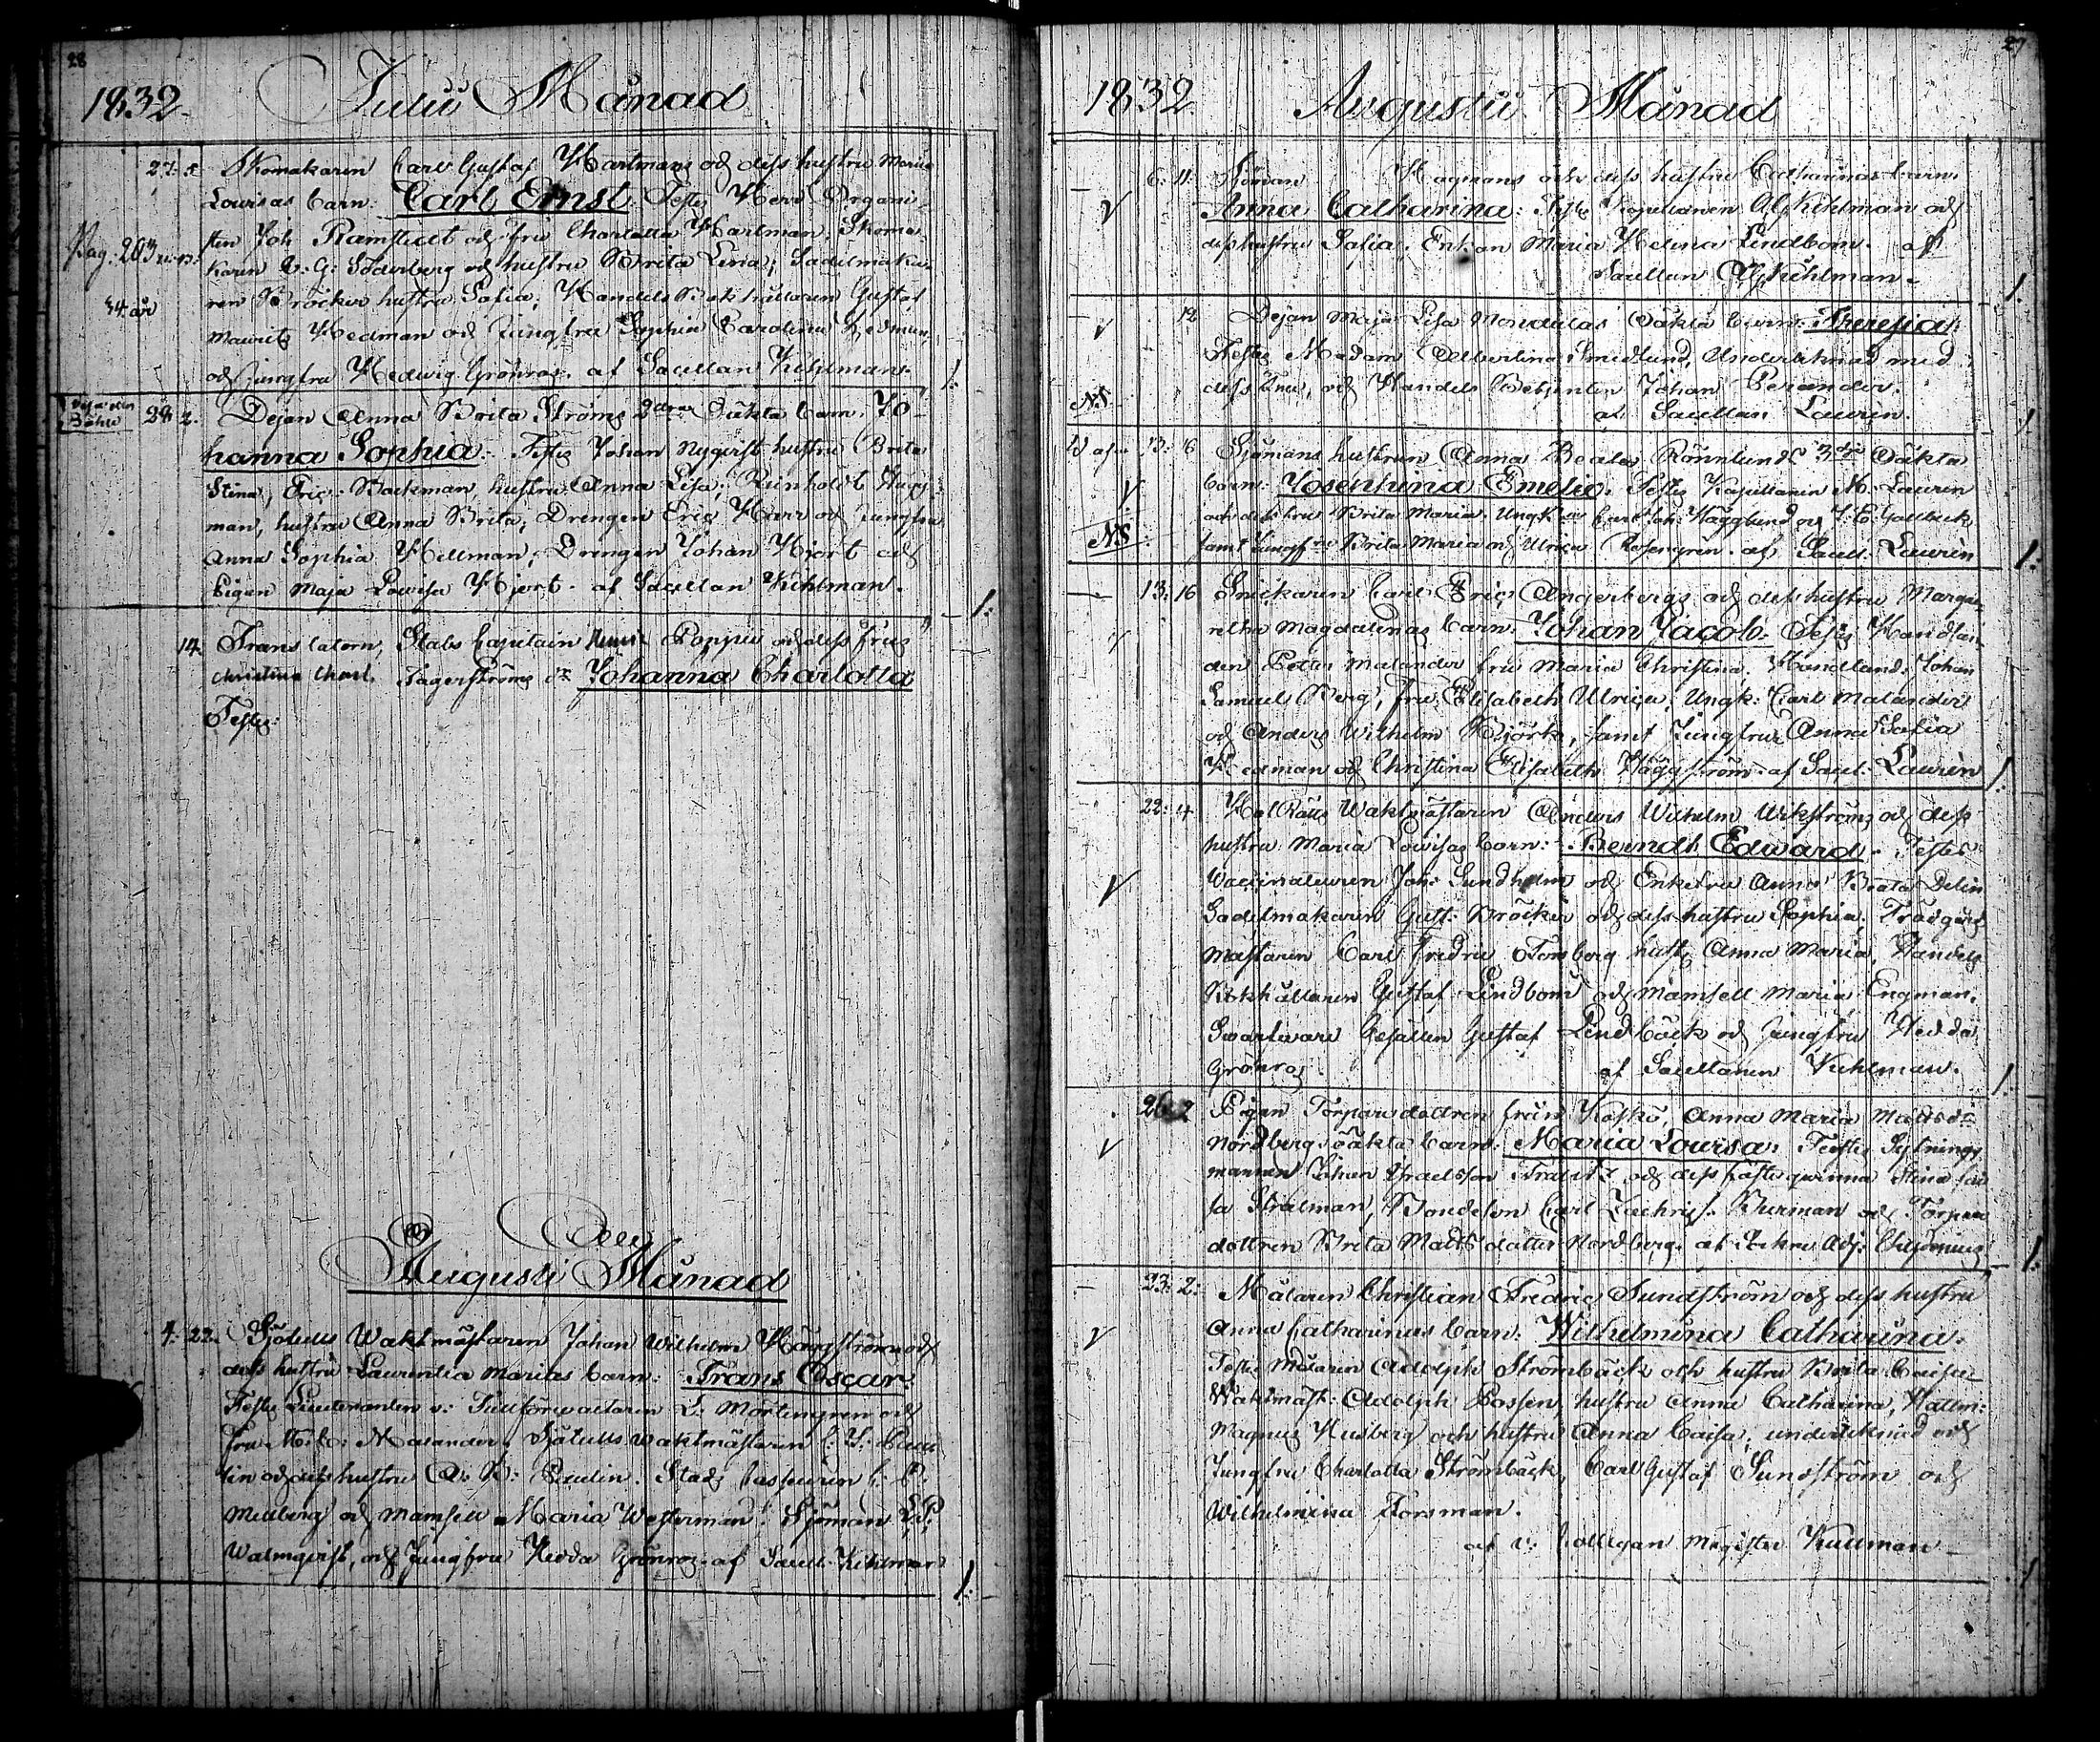 28
1832. Julii Månad
27: 5. Skomakaren Carl Gustaf Hartmans och dess hustru Maria
Lovisas barn: Carl Ernst. Testes Herr Organi-
sten Joh Ramstedt och fru Charlotta Hartman, Skoma-
Pag: 203
karen C: G: Söderberg och hustru Brita Lena; Sadelmaka-
34 år
ren Bröcker hustru Sofia, Handels Bokhållaren Gustaf
Maurits Hedman och Jungfru Sophia Carolina Hedman,
och Jungfru Hedwig Grönros. af Sacellan Kihlman.
1.
28 2. Dejan Anna Brita Ströms 2dra Oäkta barn. Jo-
hanna Sophia. Testes Johan Nyqvist hustru Brita
Stina, Eric Backman, hustru Anna Lisa; Reinholdt Hägg-
man, hustru Anna Brita, Drengen Eric Harr och Jungfru
Anna Sophia Hellman; Drengen Johan Hjort och
Pigan Maja Lowisa Hjort. af Sacellan Kihlman.
1.
14. Translatorn, Stabs Capitain Poppii och dess frus
Christina Charl. Fagerströms Johanna Charlotta
Testes:
Augusti Månad
4: 22. Sjötulls Waktmästaren Johan Wilhelm Häggströms och
dess hustru Laurentia Marias barn: Frans Oscar.
Testes Lieutenanten v: Tullförwaltaren L: Mörtengren och
fru M: C: Malander, Sjötulls waktmästaren C: J: Pau-
lin och dess hustru A: B: Paulin. Stads Casseuren C: P:
Mellberg och Mamsell Maria Westerman. Sjöman L: P:
Malmqvist, och Jungfru Hedda Grönros. af Sacell. Kihlman
1.
27
1832. Augustii Månad
6: 11. Sjöman Hagmans och dess hustru Catharinas barn.
Anna Catharina: Testes Kapellanen Alf Kihlman och
dess hustru Sofia. Enkan Maria Helena Lindbom. af
Sacellan Alf Kihlman.
1.
12 Dejan Maja Lisa Oäkta barn: Theresia.
Testes Madam Albertina Smedlund, Undertecknad med
dess Fru, och Handels Betjenten Johan Perander.
NS.
af Sacellan Laurin.
1.
13: 16 Sjömans hustrun Anna Beata Rönnlunds 3dje Oäkta
barn: Josephina Emelie. Testes Kapellanen M. Laurin
och dess fru Brita Maria. Ungk: Carl Joh. Hägglund och
NS.
samt Jungfrur Brita Maria och Ulrica Rosengren. af Sacell. Laurin
1.
13: 16 Snickaren Carl Eric Angerbergs och dess hustru Marga-
retha Magdalenas barn. Johan Jacob. Testes Handlan-
den Petter Malander fru Maria Christina, Handland: Johan
Samuel Berg, fru Elisabeth Ulrica, Ungk: Carl Malander
och Anders Wilhelm Björk, samt Jungfrur Anna Sofia
Hedman och Christina Elisabeth Häggström. af Sacel: Laurin
1.
22: 4 HofRätts Waktmästaren Anders Wilhelm Wikströms och dess
hustru Maria Lovisas barn: Berndt Edward. Testes
Joh: Sundholm och Enkefru Anna Beata Delin
Sadelmakaren Gust: Bröcker och dess hustru Sophia, Trädgårds
mästaren Carl Fredric Forsberg hustr. Anna Maria, Handels
Bokhållaren Gustaf Lindbom och Mamsell Maria Engman.
Swarfware Gesällen Gustaf Lindbäck och Jungfru Hedda
Grönros. af Sacellanen Kihlman.
1.
26 2 Pigan Torpare dottren från Koskö, Anna Maria Matsdr
Nordbergs oäkta barn: Maria Lowisa: Testes
mannen Johan Israelsson och dess fästeqwinna Stina Cai-
sa Strålman, Bondeson Carl Zachriss. Burman och Torpare
dottren Brita Matsdotter Nordberg. af
1.
23: 2: Målaren Christian Fredric Sundström och dess hustru
Anna Catharinas barn: Wilhelmina Catharina.
Testes Målaren Adolph Strömbäck och hustru Brita Caisa
Waktmäst: Adolph Possen hustru Anna Catharina,
Magnus och hustru Anna Caisa, undertecknad och
Jungfru Charlotta Strömbäck, Carl Gustaf Sundström och
Wilhelmina Forsman.
af v: Collegan Magister
1.